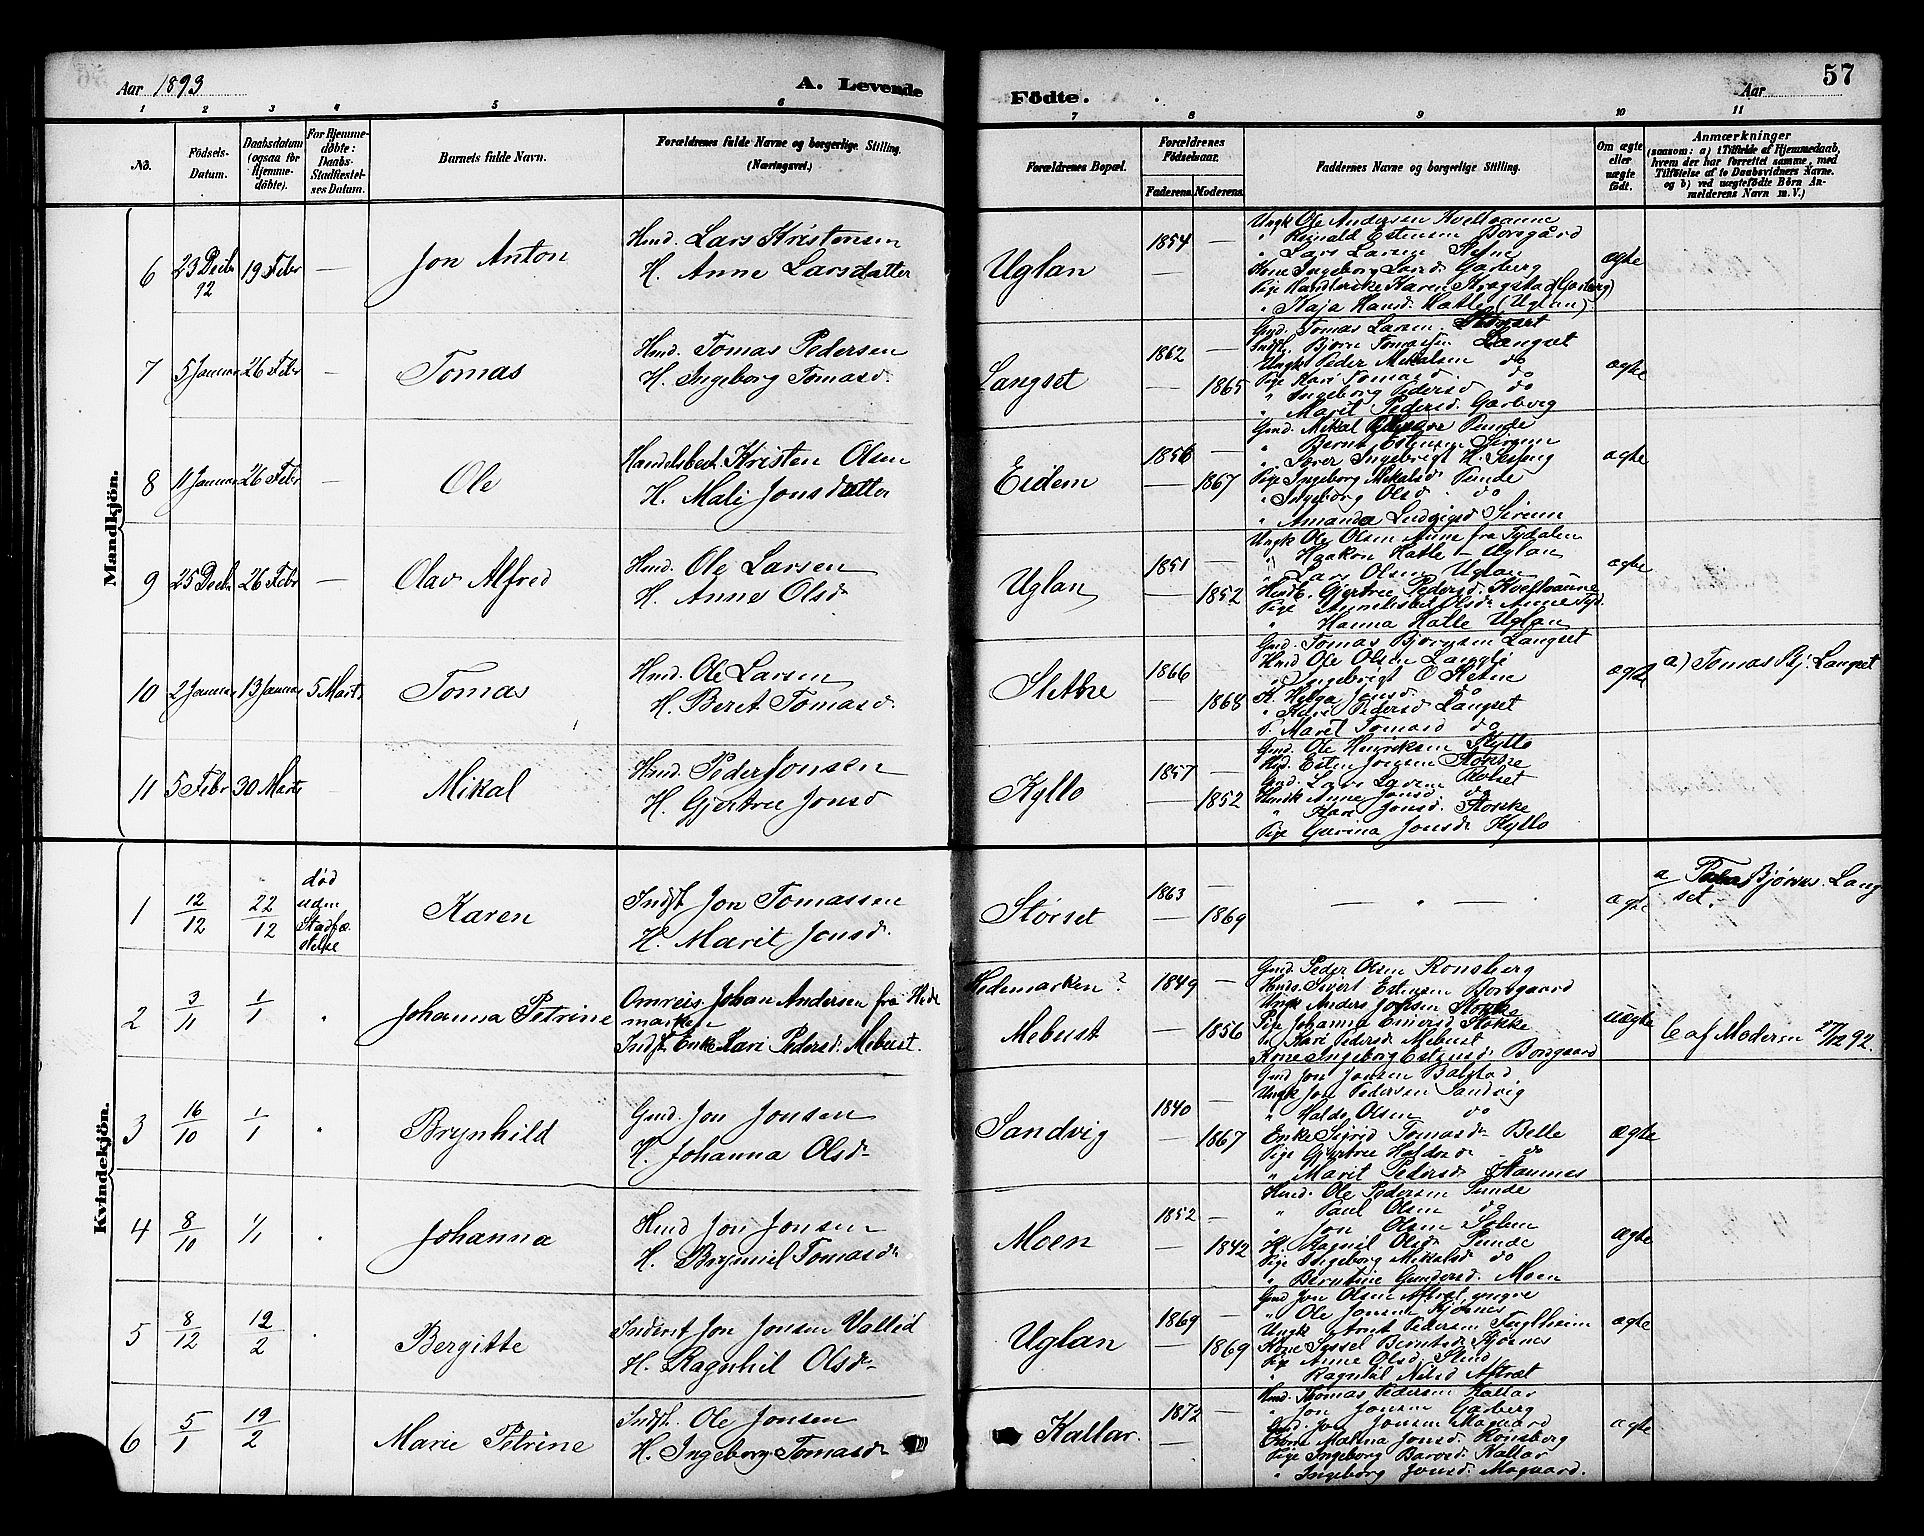 Aar 1893
A. Levende
Födte.
Aar
57
1 2 3 4 5 6 7 8 9 10 11
No.
Födsels-
Datum.
Daabsdatum
(ogsaa for
Hjemme-
döbte).
For Hjemme-
döbte:
Daabs-
Stadfæstel-
ses Datum.
Barnets fulde Navn.
Forældrenes fulde Navne og borgerlige Stilling.
(Næringsvei.)
Forældrenes Bopæl.
Forældrenes
Födselsaar.
Faderens.
Moderens.
Faddernes Navne og borgerlige Stilling.
Om ægte
eller
uægte
födt.
Anmærkninger
(saasom: a) i Tilfælde af Hjemmedaab,
hvem der har forrettet samme, med
Tilföielse af to Daabsvidners Navne.
og b) ved uægtefödte Börn An-
melderens Navn m. V.)
Mandkjön.
6 23 Decbr 92 19 Febr — Jon Anton
Hmd. Lars Kristensen
H. Anne Larsdatter
Uglan 1854 — ægte
Ungk Ole Andersen Kvelloanne
" Reinald Estensen Borsgård
" Lars Larsen Stefne
Kone Ingeborg Larsd. Garberg
Pige Handlerike Karen Krogstad (Garberg)
" Kaja Hansd. Hatle (Uglan)
7 5 Januar 26 Febr — Tomas
Hmd. Tomas Pedersen
H. Ingeborg Tomasd.
Langset 1862 — 1865 ægte
Gmd. Tomas Larsen
Indst. Bjørn Tomassen Langset
Ungk Peder Mikalsen do
Pige Kari Tomasd. do
" Ingeborg Pedersd do
" Marit Pedersd. Garberg
8 11 Januar 26 Febr — Ole
Handelsbest. Kristen Olsen
H. Mali Jonsdatter
Eidem 1856 — 1867 ægte
Gmd. Mikal Punde
" Bernt Estensen Sirum
" Iver Ingebrigt H. Sesseng
Pige Ingeborg Mikalsd. Punde
" Ingeborg Olsd. do
" Amanda Ludvigsd Sirum
9 25 Decbr 26 Febr — Olav Alfred
Hmd. Ole Larsen
H. Anne Olsd
Uglan 1851 — 1852 ægte
Ungk Ole Olsen Aune fra Tydalen
" Haakon Hatle — Uglan
" Lars Olsen Uglan
Gjertrue Pedersd. Kvelloaune
Pige Annelisbet Olsd. Aune Tyd.
" Hanna Hatle Uglan
10 2 Januar 13 Januar 5 Marts Tomas
Hmd. Ole Larsen
H. Beret Tomasd.
Slethre 1866 — 1868 ægte
Gmd. Tomas Bjørnsen Langset
Hmd Ole Olsen Langli
" Ingebrigt O
K. Helga Jonsd. do
" Kari Pedersd Langset
P. Marit Tomasd do
a) Tomas Bj. Langset
11 5 Febr 30 Marts Mikal
Hmd. Peder Jonsen
H. Gjertrue Jonsd
Kyllo 1857 — 1852
Gmd. Ole Henriksen Kyllo
Hmd. Esten Jonsen Stokke
Gmd. Lars Larsen Rolset
Anne Jonsd do
" Kari Jonsd. Stokke
Pige Gurina Jonsd. Kyllo
Kvindekjön.
1 12/12 22/12 død uden Stadfæ-stelse Karen
Indst Jon Tomassen
H. Marit Jonsd.
Størset 1863 — 1869 — " — ægte
a Bjørns. Lang
set.
2 3/11 1/1 " Johanna Petrine
Omreis. Johan Andersen fra Hede
marken
Indst. Enke Kari Pedersd. Mebust.
Hedemarken? 1849 —
Mebust — 1856 uægte
Gmd. Peder Olsen Ronsberg
Hmd. Sivert Estensen Borsgaard
Ungk Anders Johnsen Stokke
Pige Johanna Einersd Stokke
P. Kari Pedersd Mebust
Kone Ingeborg Estensd. Borsgaard
b af Moderen 27/12 92.
3 16/10 1/1 " Brynhild
Gmd. Jon Jonsen
H. Johanna Olsd.
Sandvig 1840 — 1867 ægte
Gmd Jon Jonsen Balstad
Ungk Jon Pedersen Sandvig
" Haldo Olsen do
Enke Sigrid Tomasd. Belle
Pige Gjertrue Haldosd. do
" Marit Pedersd Stamnes
4 8/10 1/1 " Johanna
Hmd Jon Jonsen
H. Brynhil Tomasd.
Moen 1852 — 1842 ægte
Hmd. Ole Pedersen Punde
" Paul Olsen do
" Jon Olsen Solem
H. Ragnil Olsd Punde
Pige Ingeborg Mikalsd do
" Berntine Gundersd. Moen
5 8/12 12/2 " Bergitte
Inderst Jon Jonsen Vallid
H. Ragnhil Olsd.
Uglan 1869 — 1869 ægte
Gmd Jon Olsen Aftret yngre
" Ole Jonsen Kjøsnes
Ungk Arnt Pedersen Fuglheim
Kone Sissel Berntsd. Kjøsnes
Pige Anne Olsd. Slind
" Ragnhil Nilsd Aftret
6 5/1 19/2 Marie Petrine
Indst. Ole Jonsen
H. Ingeborg Tomasd.
Kallar. 1872 — ægte
Hmd. Thomas Pedersen Kallar
" Jon Jonsen Garberg
Gmd. Jon Jonsen Mogaard
Kone Malena Jonsd. Ronsberg
Pige Ingeborg Barod. Kallar
" Ingeborg Jonsd. Mogaard.